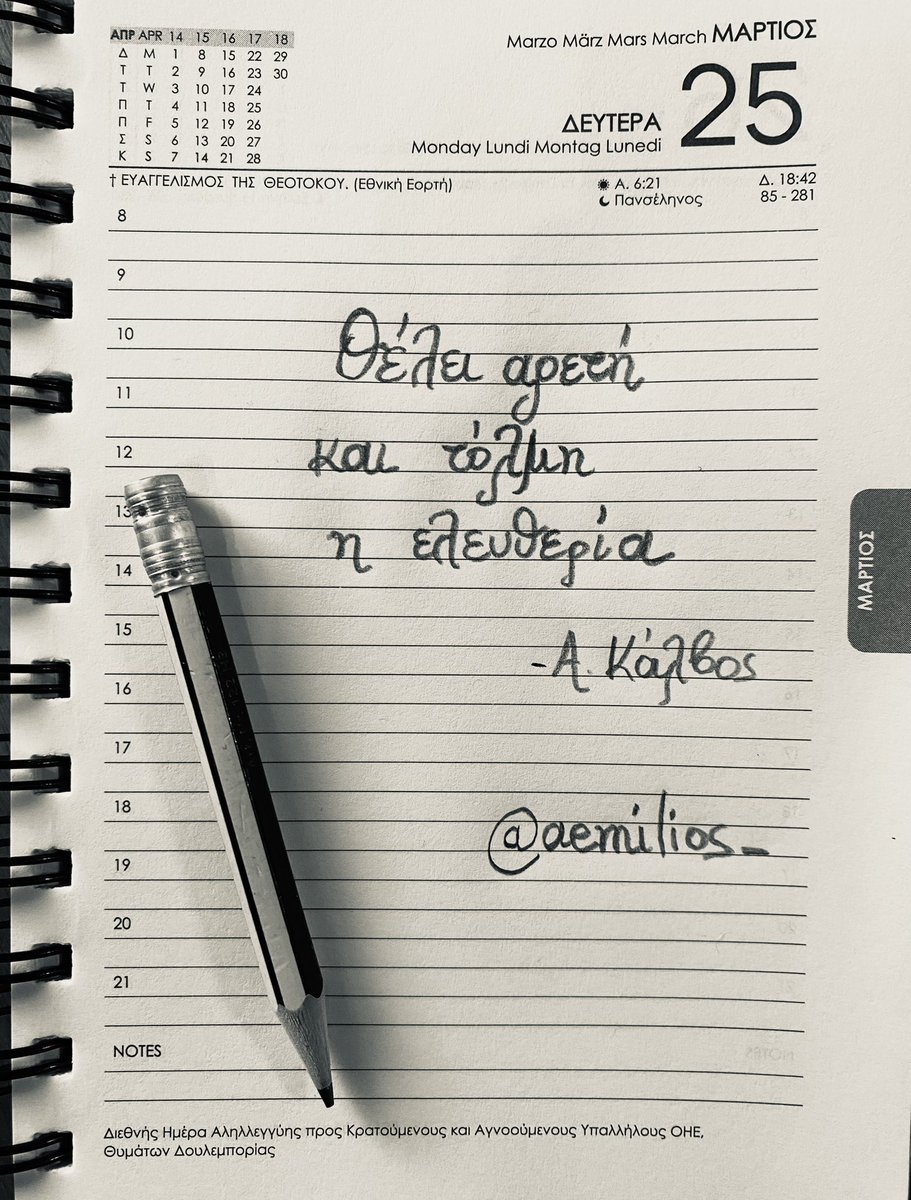 ΑΠΡ APR 14 15 16 17 18
Δ M 1 8 15 22 29
Τ T 2 9 16 23 30
Τ W 3 10 17 24
Π T 4 11 18 25
Π F 5 12 19 26
Σ S 6 13 20 27
Κ S 7 14 21 28
Marzo März Mars March ΜΑΡΤΙΟΣ
25
ΔΕΥΤΕΡΑ
Monday Lundi Montag Lunedi
† ΕΥΑΓΓΕΛΙΣΜΟΣ ΤΗΣ ΘΕΟΤΟΚΟΥ. (Εθνική Εορτή)
Α. 6:21 Δ. 18:42
Πανσέληνος 85 - 281
8
9
10
Θέλει αρετή
11
12
και τόλμη
13
η ελευθερία
14
ΜΑΡΤΙΟΣ
15
- Α. Κάλβος
16
17
18
@aemilios_
19
20
21
NOTES
Διεθνής Ημέρα Αληλλεγγύης προς Κρατούμενους και Αγνοούμενους Υπαλλήλους ΟΗΕ,
Θυμάτων Δουλεμπορίας